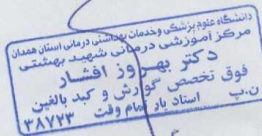 دانشگاه علوم پزشکی وخدمات بهداشتی درمانی استان همدان
مرکز آموزشی درمانی شهید بهشتی
دکتر بهروز افشار
فوق تخصص گوارش و کبد بالغین
استاد یار تمام وقت
ن.پ ۳۸۷۲۳